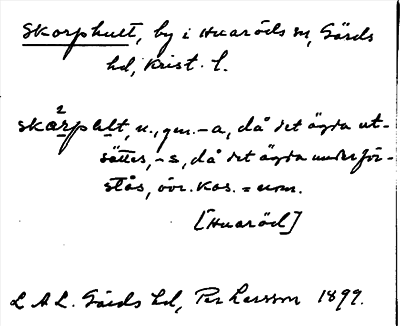 Skorphult, by i Huaröds sn, Gärds
hd, Krist. l.
skɑ²rphlt, n., gen. -a, då det ägda ut-
sättes, -s, då det ägda underför-
stås, övr. kas. = nom.
[Huaröd]
L A L. Gärds hd, Per Larsson 1899.